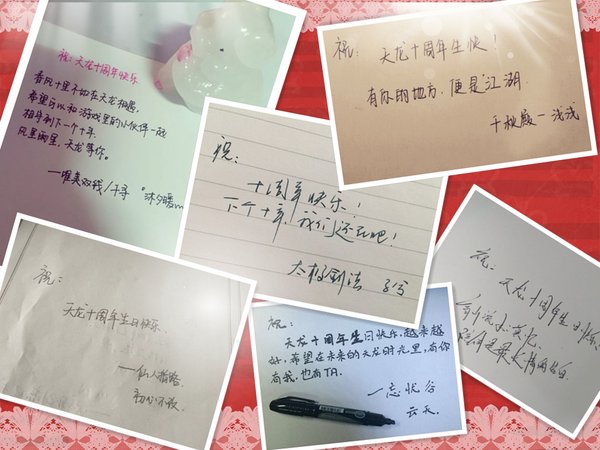 祝:天龙十周年快乐
春风十里不如在天龙相遇,
希望可以和游戏里的小伙伴一起
相伴到下一个十年.
风里雨里,天龙等你.
祝: 天龙十周年生快!
有你的地方,便是江湖
千秋殿一浅浅
祝:
十周年快乐!
下个十年,我们还在吧!
太极剑法
祝:
天龙十周年生日快乐.
——仙人指路
初心不改
祝:
天龙十周年生日快乐,越来越
好,希望在未来的天龙时光里,有你
有我,也有TA.
一忘忧谷
云天
祝: 天龙十周年生日快乐